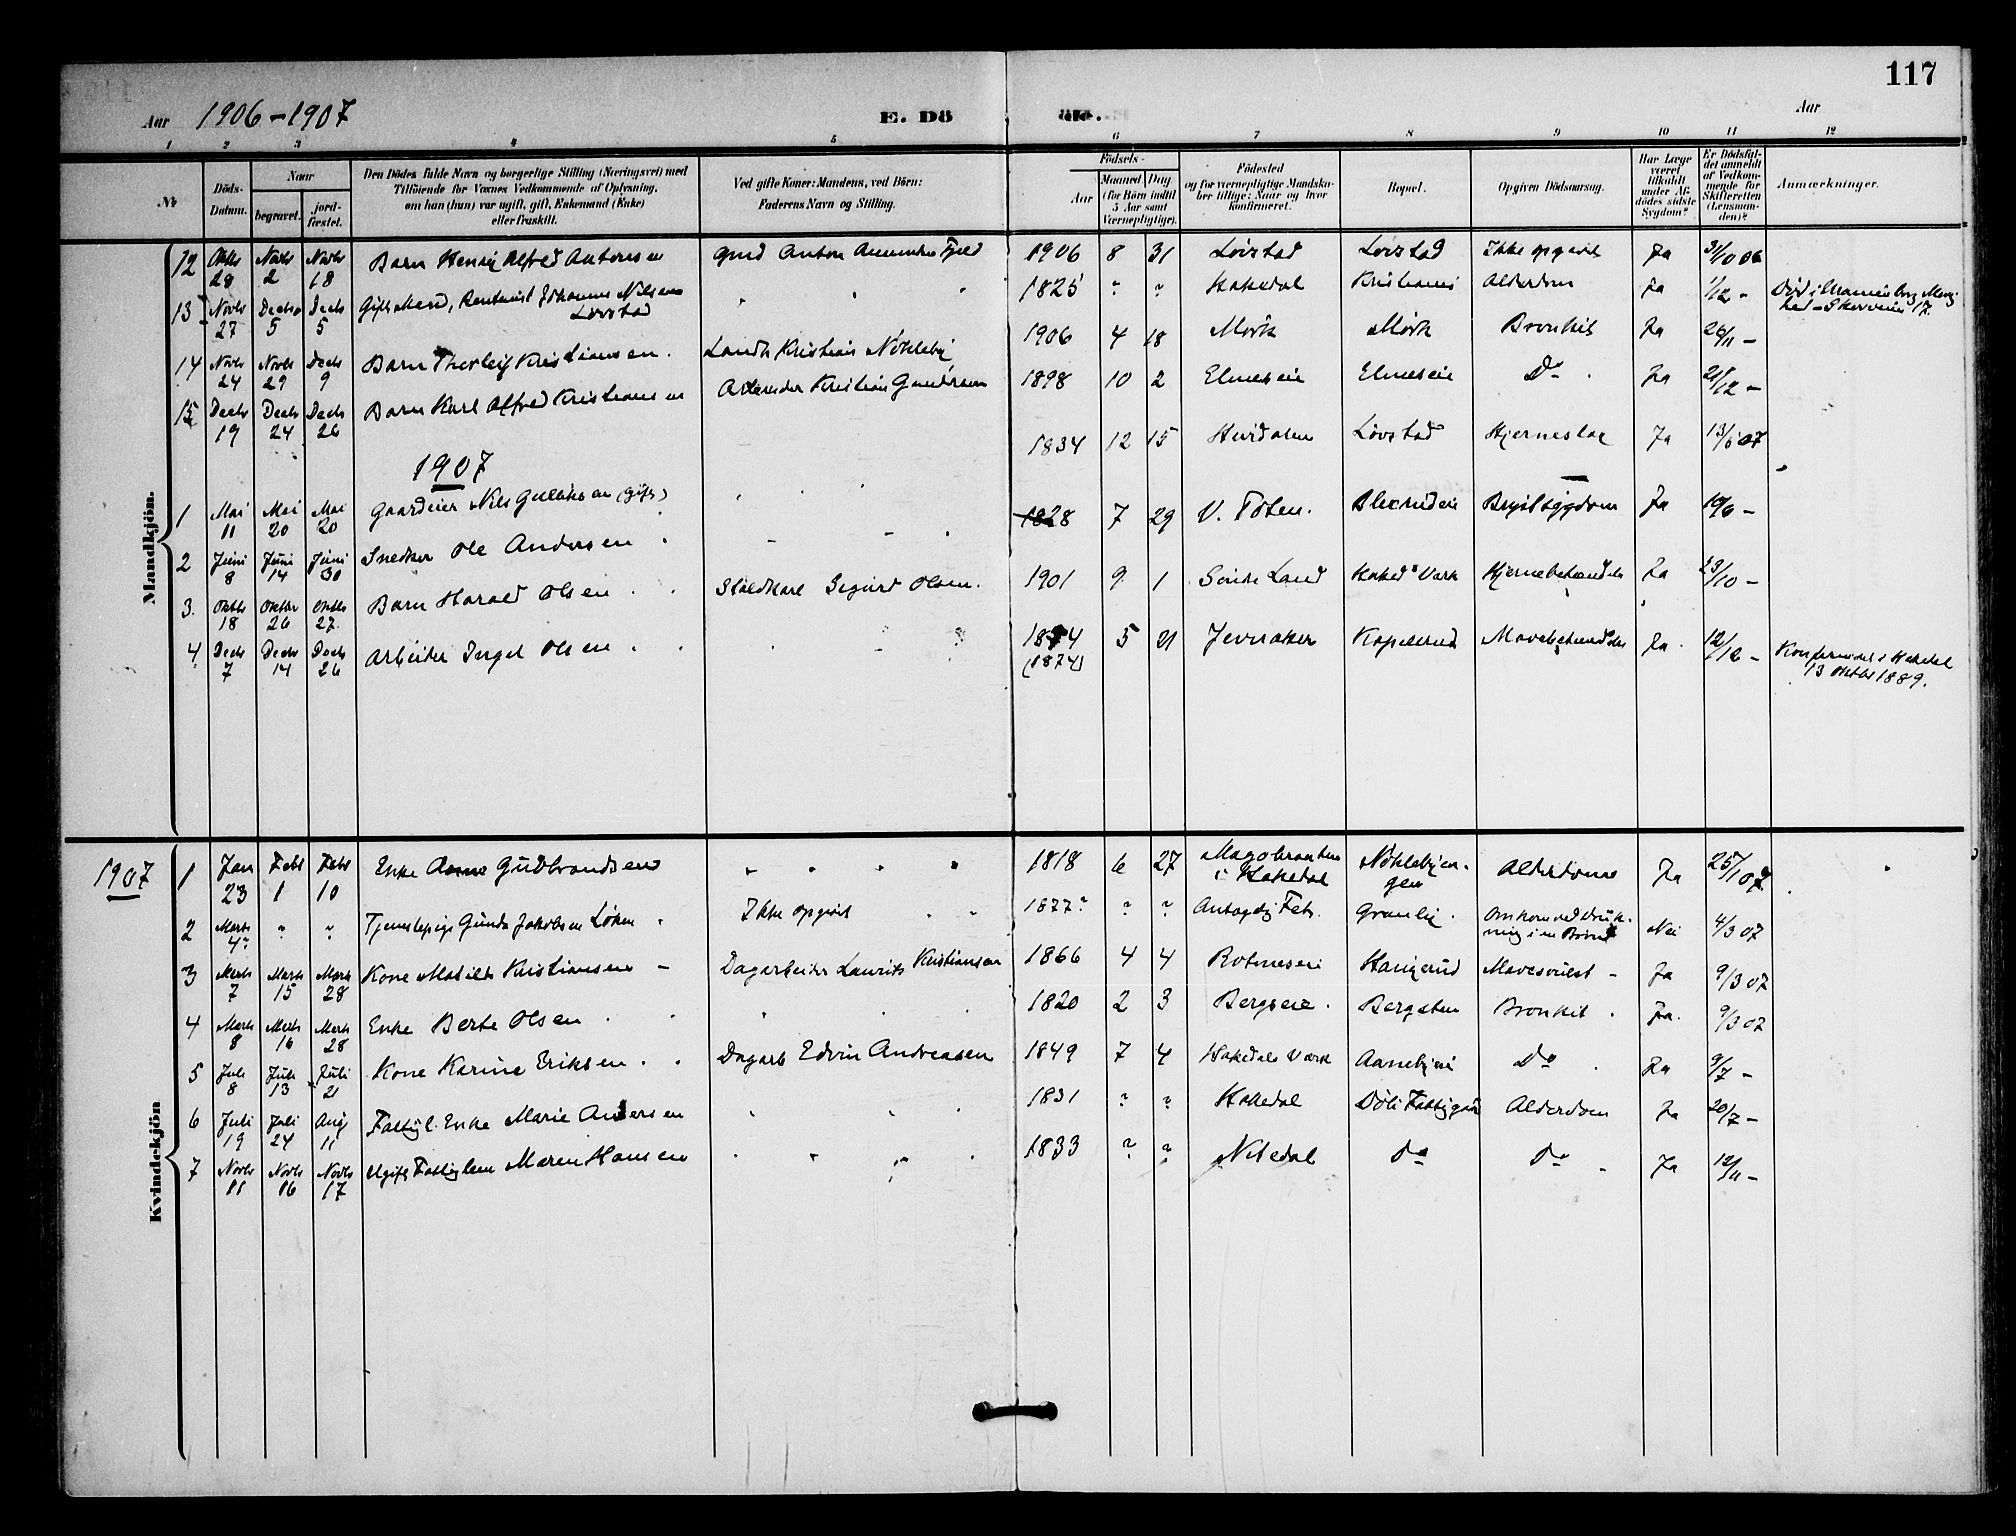 117
Aar 1906-1907 E. Dö de. Aar
1 2 3 4 5 6 7 8 9 10 11 12
No
Döds-Datum.
Naar
begravet.
jord-fæstet.
Den Dödes fulde Navn og borgerlige Stilling (Næringsvei) med
Tilföiende for Voxnes Vedkommende af Oplysning,
om han (hun) var ugift, gift, Enkemand (Enke)
eller fraskilt.
Ved gifte Koner: Mandens, ved Börn:
Faderens Navn og Stilling.
Födsels-
Aar
Maaned Dag
(for Börn indtil
5 Aar samt
Værnepligtige).
Födested
og for værnepligtige Mandska-
ber tillige: Naar og hvor
konfirmeret.
Bopæl.
Opgiven Dödsaarsag.
Har Læge
været
tilkaldt
under Af-
dödes sidste
Sygdom?
Er Dödsfal-
det anmeldt
af Vedkom-
mende for
Skifteretten
(Lensman-
den)?
Anmærkninger.
Mandkjön.
12 Oktbr 28 Novbr 2 Novbr 18 Barn Henry Alfred Antonsen Gmd Anton Fjeld 1906 8 31 Lövstad Lövstad Ikke opgivet Ja 31/10 06
13 Novbr 27 Decbr 5 Decbr 5 Gift Mand, Rentenist Johannes Nilsen Lövstad " " " 1825 ? ? Hakedal Kristiania Alderdom Ja 1/12 - Död i 17.
14 Novbr 24 Novbr 29 Decbr 9 Barn Thorleif Kristiansen. Landh Kristian Nökleby 1906 4 18 Mörk Mörk Bronkit Ja 26/11 -
15 Decbr 19 Decbr 24 Decbr 26 Barn Karl Alfred Kristiansen Arbeider Kristian Gundersen 1898 10 2 Elneseie Elneseie Do. Ja 21/12 -
1907
1 Mai 11 Mai 20 Mai 20 Gaardeier Nils Gulliksen (gift) 1834 12 15 Hvidalen Lövstad Hjerneslag Ja 13/5 07
2 Juni 8 Juni 14 Juni 30 Snedker Ole Andersen 1828 7 29 V. Toten. Brystsygdom Ja 10/6 -
3. Oktbr 18 Oktbr 26 Oktbr 27. Barn Harald Olsen Staldkarl Sigurd Olsen. 1901 9 1 Söndre Land Haked. Værk Hjernebetændelse Ja 23/10 -
4 Decbr 7 Decbr 14 Decbr 26 Arbeider Ingel Olsen 1874 (1874) 5 21 Jevnaker Kapelrud Mavebetændelse Ja. 12/12 - Konfirmeret i Hakedal 13 Oktbr 1889.
1907
Kvindekjön
1 Jan 23 Febr 1 Febr 10 Enke Anne Gudbrandsen 1818 6 27 Magobraaten i Hakedal Nöklebyengen Alderdom Ja 25/1 07.
2 Marts 4? ? ? Tjenestepige Gunda Jakobsen Löken Ikke opgivet 1877? ? ? Antagelig Fet. Granlie. Omkom ved drukning i en Brönd Nei 4/3 07
3 Marts 7 Marts 15 Marts 28 Kone Matilde Kristiansen - Dagarbeider Laurits Kristiansen 1866 4 4 Rotneseie Haugerud Mavesvulst - Ja 9/3 07
4 Marts 8 Marts 16 Marts 28 Enke Berte Olsen 1820 2 3 Bergseie. Bergsten Bronkit. Ja. 9/3 07
5 Juli 8 Juli 13 Juli 21 Kone Karine Eriksen. Dagarb Edvin Andreasen 1849 7 4 Hakedals Værk Aanebyeie Do. Ja 9/7 -
6 Juli 19 Juli 24 Aug 11 Fattigl. Enke Marie Andersen 1831 ? ? Hakedal Döli Fattiggaard Alderdom Ja 20/7 -
7 Novbr 11 Novbr 16 Novbr 17 Ugift Fattiglem Maren Hansen 1833 ? ? Nitedal Do Do Ja 12/11 -